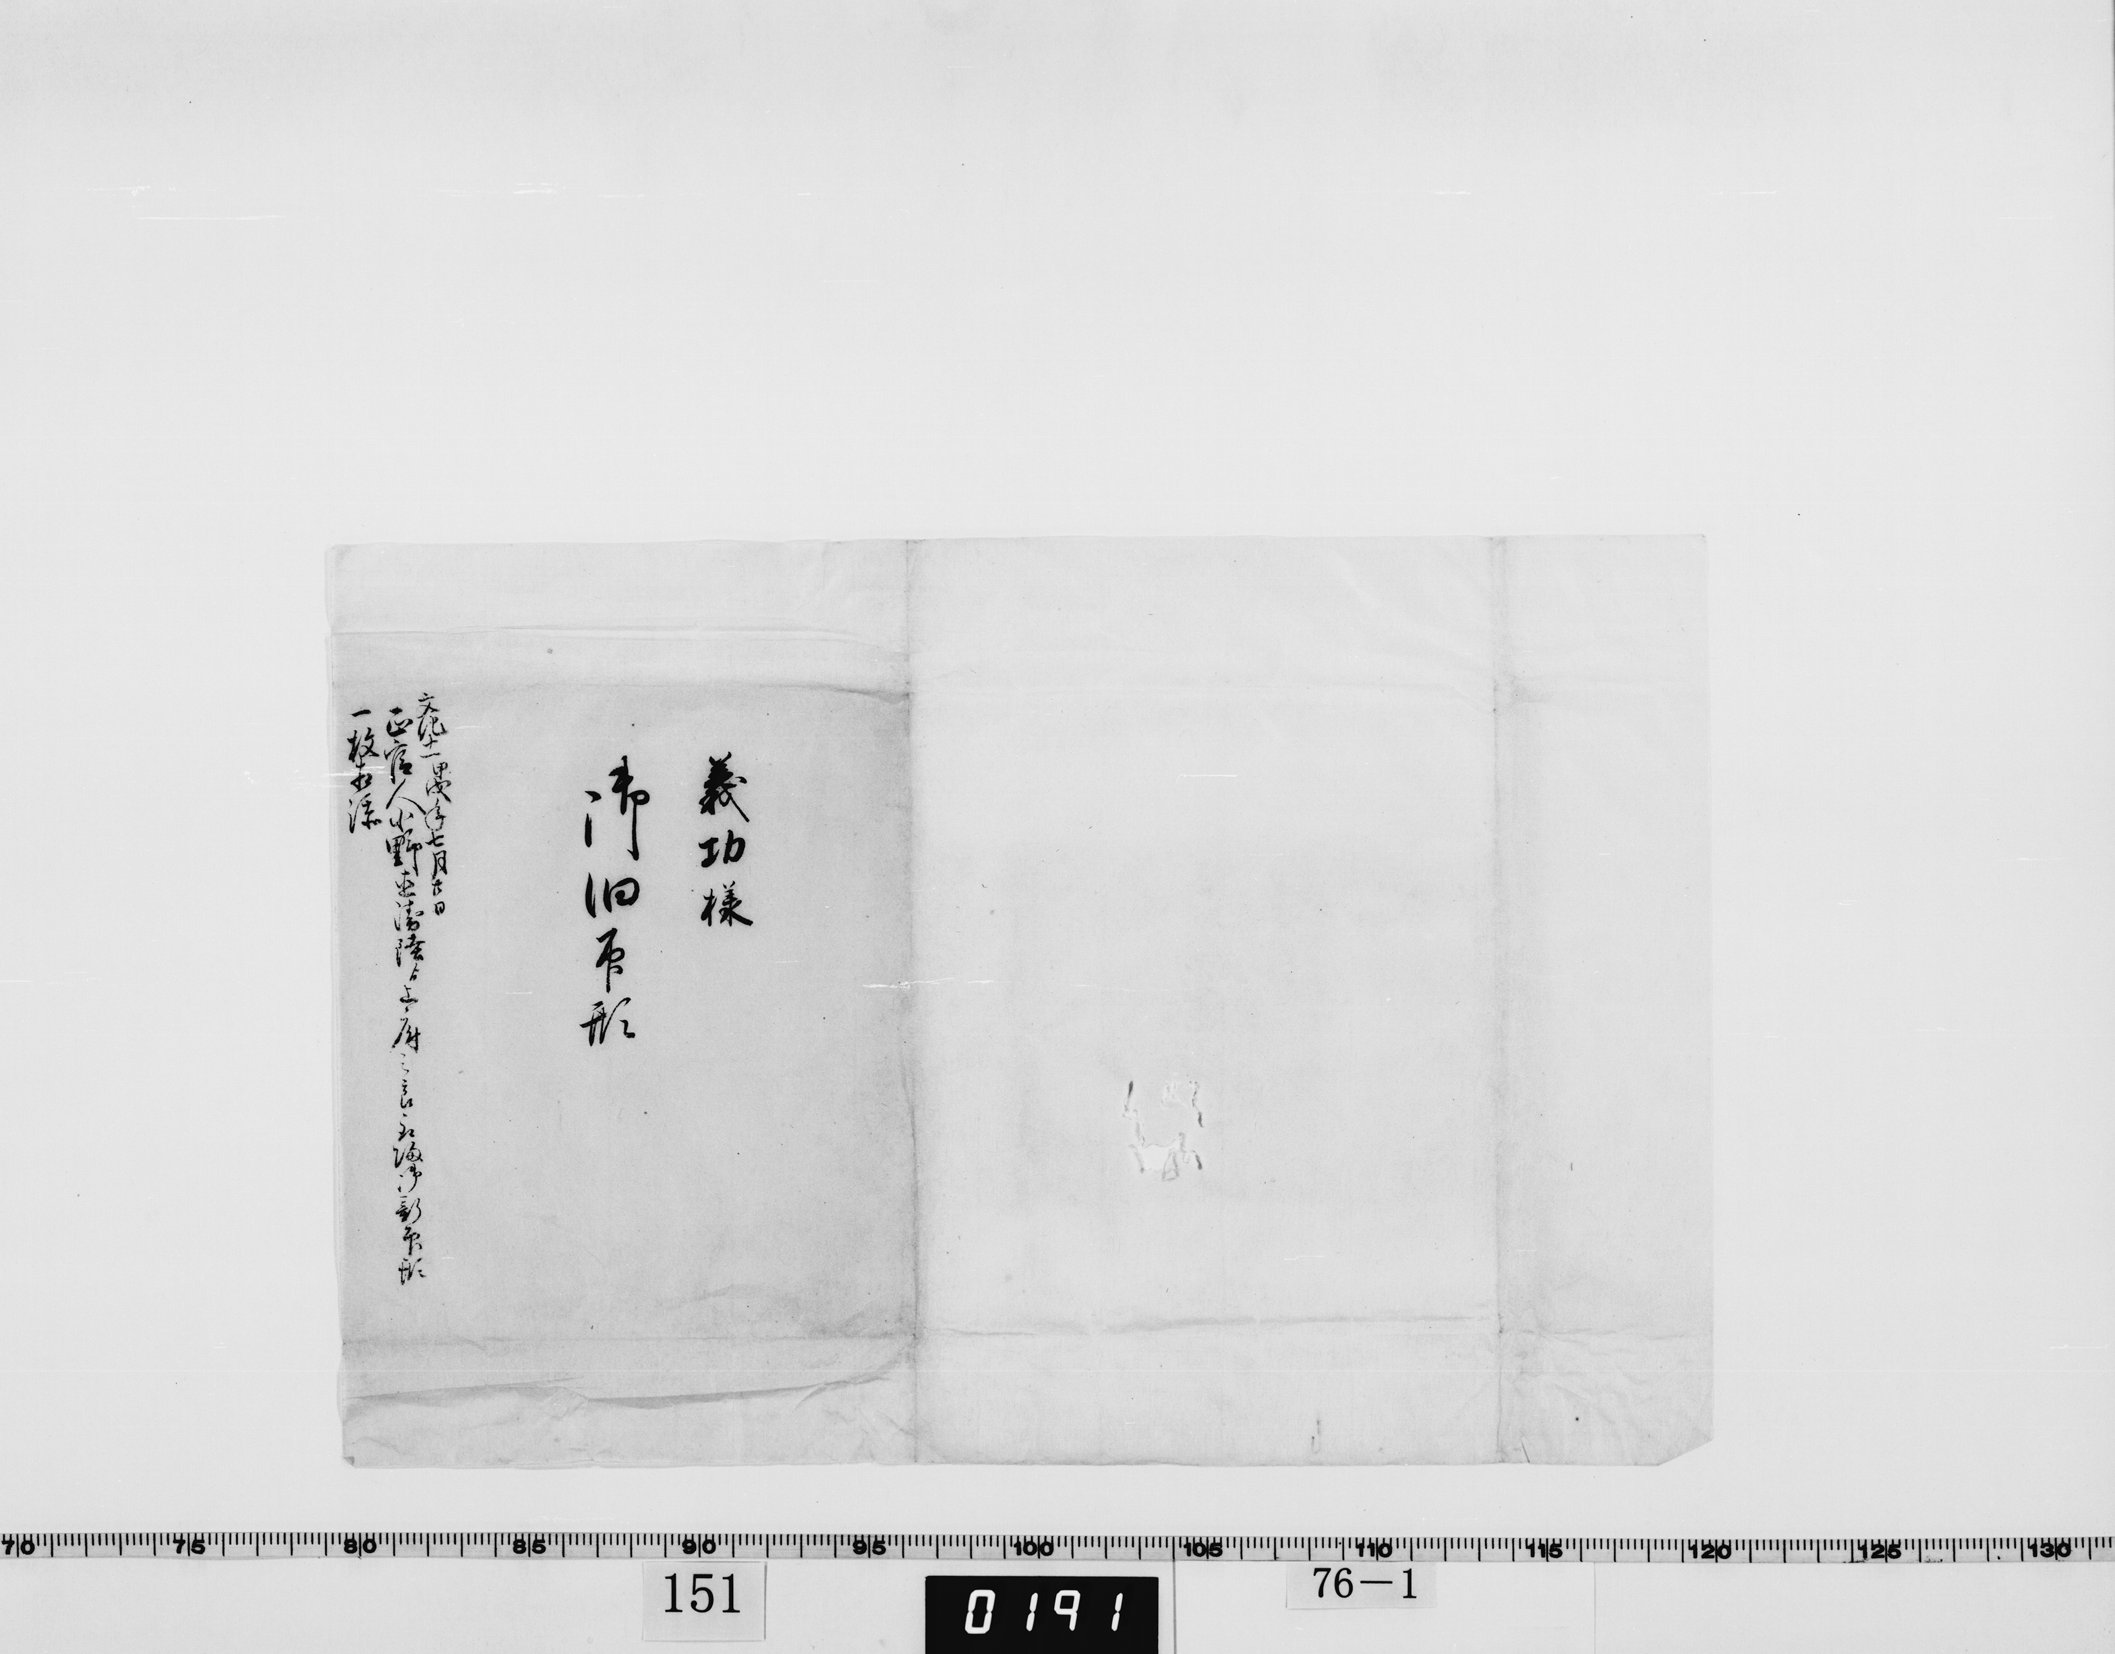 義功様
御旧印形
文化十一甲戌年七月廿日
正官人小野直衛陸ゟ上府之良
御印形
一枚相添
70 75 80 85 90 95 100 105 110 115 120 125 130
151
0191
76-1